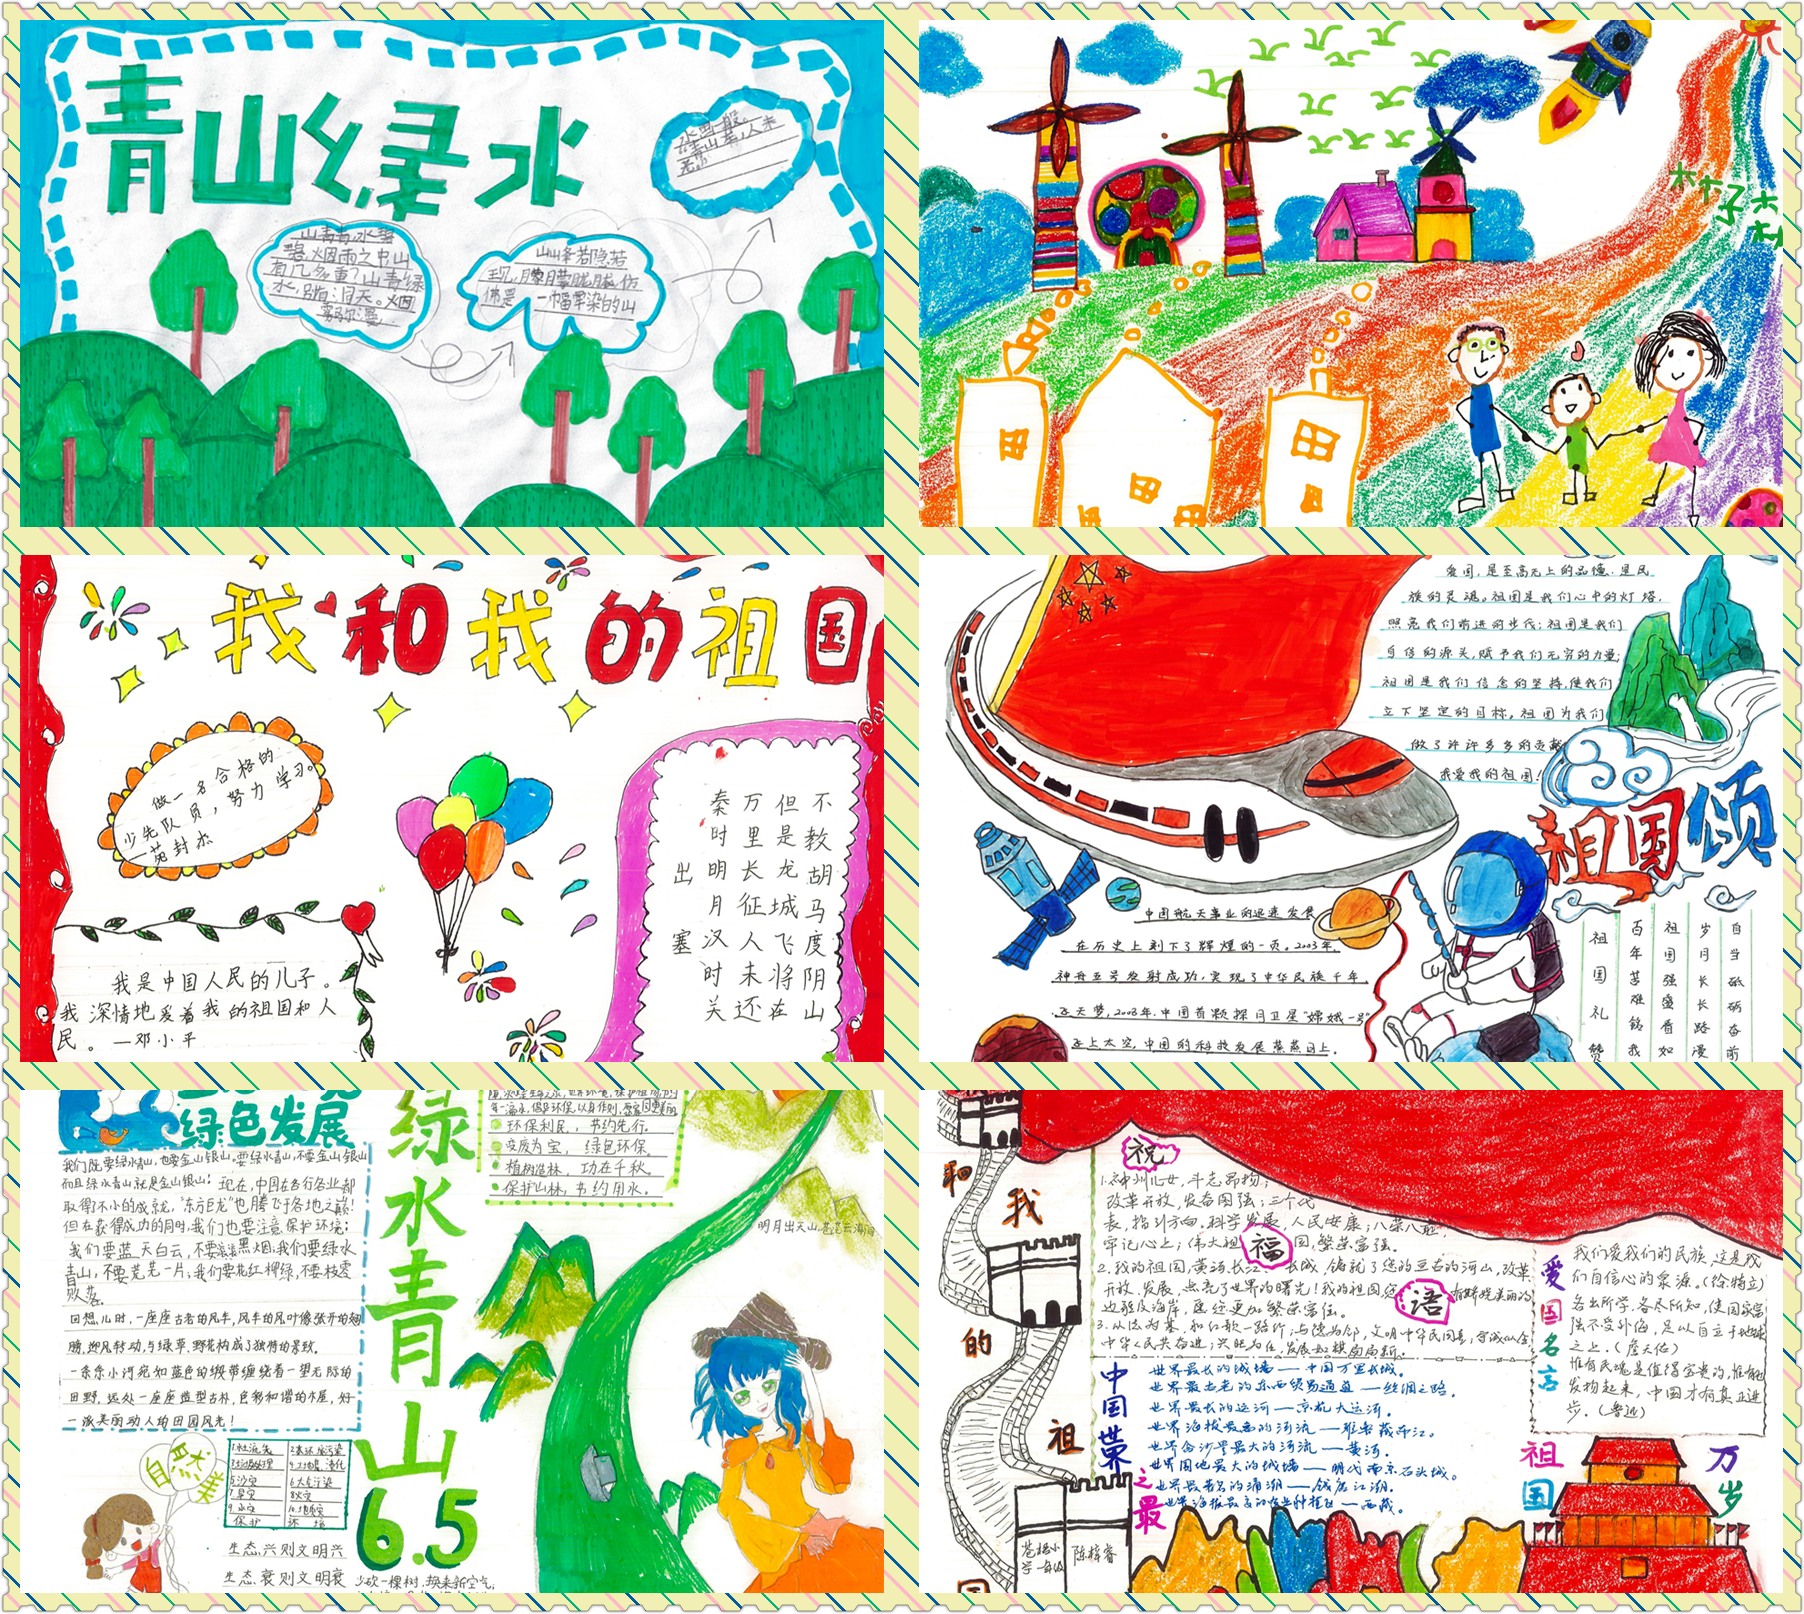 青山绿水
山青青,水碧
碧,烟雨之中山
有几多重?山青绿
水,别有洞天。烟
雾弥漫
山峰若隐若
现,朦朦胧胧,仿
佛是一幅晕染的山
水画一般。
青山
我和我的祖国
做一名合格的
少先队员,努力学习。
秦时明月汉时关
万里长征人未还
但是龙城飞将在
不教胡马度阴山
出塞
我是中国人民的儿子。
我深情地爱着我的祖国和人
民。—邓小平
爱国,是至高无上的品德,是民
族的灵魂。祖国是我们心中的灯塔,
照亮我们前进的步伐;祖国是我们
自信的源头,赋予我们无穷的力量;
祖国是我们信念的坚持,使我们
立下坚定的目标。祖国为我们
做了许许多多的贡献
我爱我的祖国!
祖国颂
中国航天事业的迅速发展
在历史上刻下了辉煌的一页。2003年,
神舟五号发射成功,实现了中华民族千年
飞天梦,2008年,中国首颗探月卫星“嫦娥一号”
飞上太空,中国的科技发展蒸蒸日上。
祖国礼赞
百年苦难铭我
祖国强盛看如
岁月长长路漫
自当砥砺奋前
绿色发展
我们既要绿水青山,也要金山银山。要绿水青山,不要金山银山
而且绿水青山就是金山银山!现在,中国在各行各业都
取得不小的成就,“东方巨龙”也腾飞于各地之巅!
但在获得成功的同时,我们也要注意保护环境;
我们要蓝天白云,不要滚滚黑烟;我们要绿水
青山,不要荒芜一片;我们要花红柳绿,不要枝零
败落。
回想儿时,一座座古老的风车,风车的风叶像张开的翅
膀,迎风转动,与绿草,野花构成了独特的景致。
一条条小河宛如蓝色的缎带缠绕着一望无际的
田野,远处一座座造型古朴,色彩和谐的木屋,好
一派美丽动人的田园风光!
自然美
保护环境
生态兴则文明兴
生态衰则文明衰
绿水青山
6.5
环保利民,节约先行。
变废为宝,绿色环保。
植树造林,功在千秋。
保护山林,节约用水。
明月出天山,苍茫云海间
少砍一棵树,换来新空气;
和我的祖国
祝福语
1.神州儿女,斗志昂扬;
改革开放,发奋图强;三个代
表,指引方向,科学发展,人民安康;八荣八耻,
牢记心上;伟大祖国,繁荣富强。
2.我的祖国,黄河,长江,长城,铺就了您的亘古的河山,改革
开放,发展,点亮了世界的曙光!我的祖国,
边强及海岸,愿您更加繁荣富强。
中国世界之最
世界最长的城墙——中国万里长城。
世界最古老的东西贸易通道——丝绸之路。
世界最长的运河——京杭大运河。
世界海拔最高的河流——雅鲁藏布江。
世界含沙量最大的河流——黄河。
世界围地最大的城墙——明代南京石头城。
世界最著名的涌潮——钱塘江潮。
世界海拔最高的农业种植区——西藏。
爱国名言
我们爱我们的民族,这是我
们自信心的泉源。(徐特立)
各出所学,各尽所知,使国家富
强不受外侮,足以自立于地球
之上。(詹天佑)
惟有民魂是值得宝贵的,惟有他
发扬起来,中国才有真正进
步。(鲁迅)
祖国万岁
苍梧小
学一年级
陈梓睿